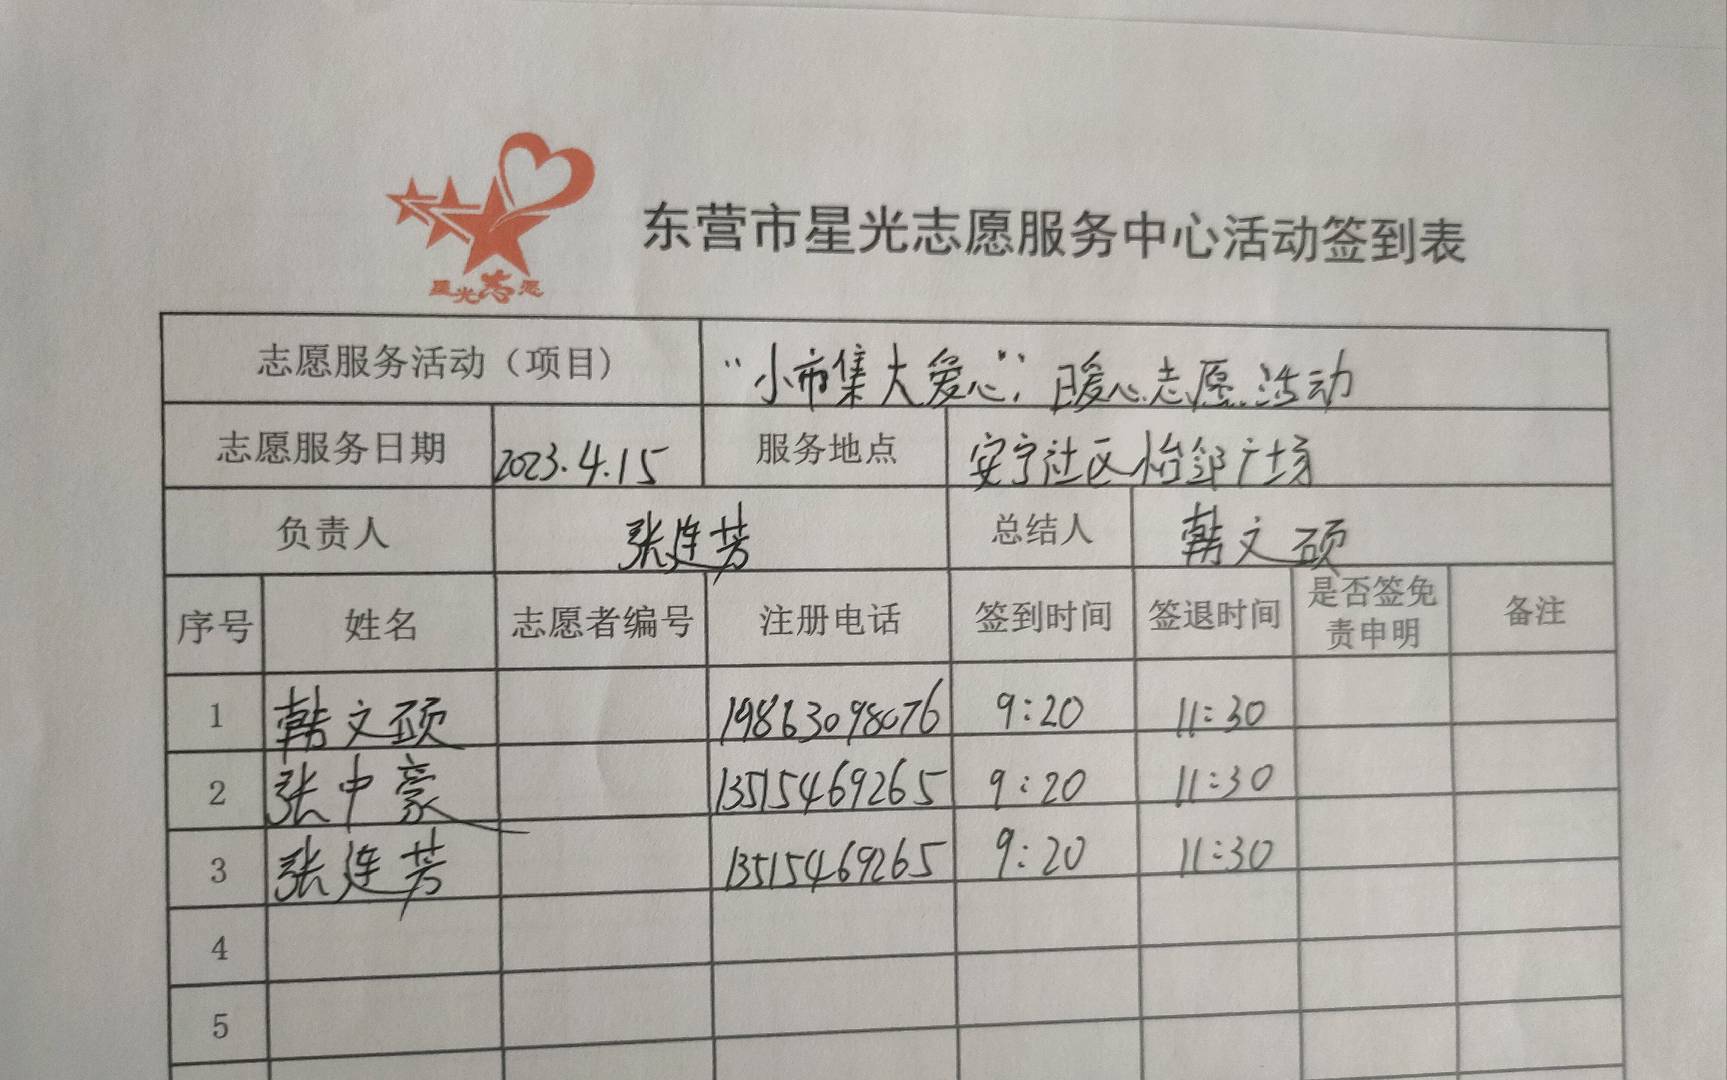 星光志愿
东营市星光志愿服务中心活动签到表
志愿服务活动（项目） “小市集大爱心”，暖心志愿活动
志愿服务日期 2023.4.15 服务地点 安宁社区怡邻广场
负责人 张连芳 总结人 韩文硕
序号 姓名 志愿者编号 注册电话 签到时间 签退时间 是否签免责申明 备注
1 韩文硕 19863098076 9:20 11:30
2 张中豪 13515469265 9:20 11:30
3 张连芳 13515469265 9:20 11:30
4
5